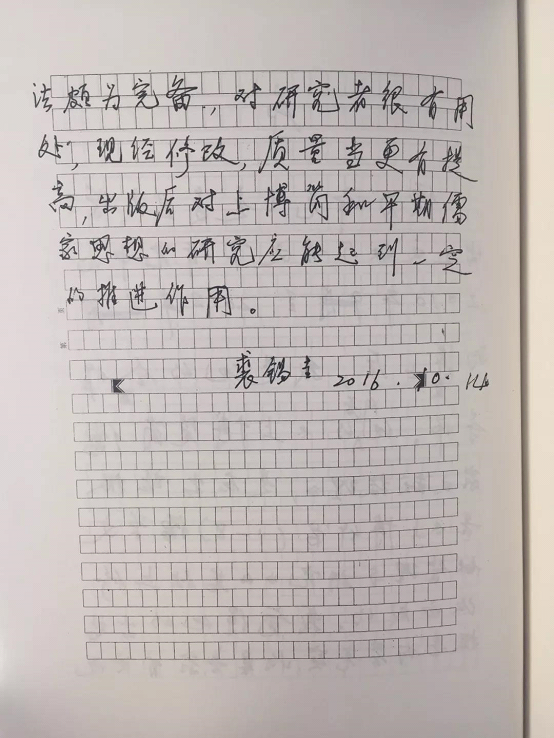 法颇为完备，对研究者很有用
处，现经修改，质量当更有提
高，出版后对上博简和早期儒
家思想的研究应能起到一定
的推进作用。
裘锡圭 2016.10.